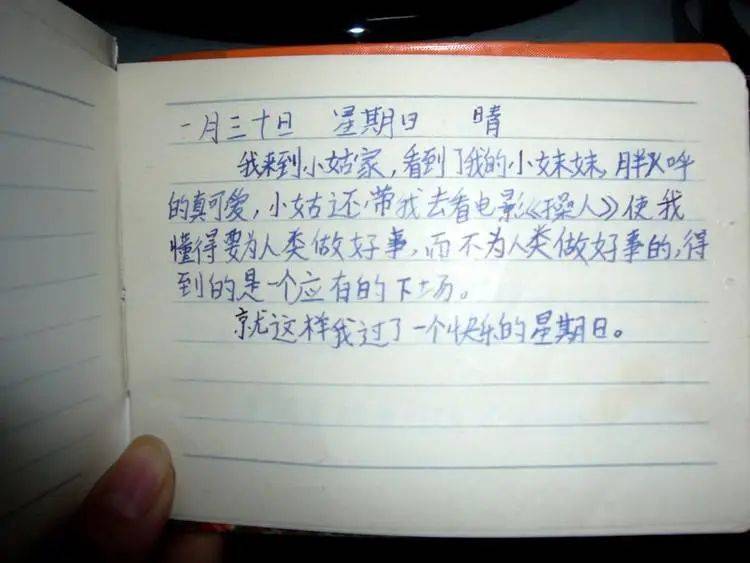 一月三十日 星期日 晴
我来到小姑家,看到了我的小妹妹,胖呼呼
的真可爱,小姑还带我去看电影《操人》使我
懂得要为人类做好事,而不为人类做好事的,得
到的是一个应有的下场。
就这样我过了一个快乐的星期日。